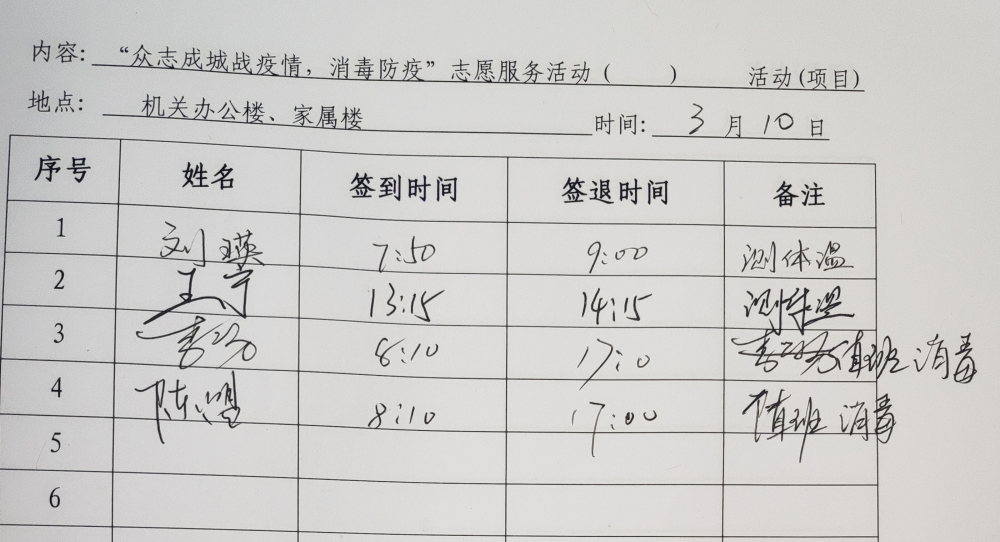 内容: “众志成城战疫情，消毒防疫”志愿服务活动 ( ) 活动(项目)
地点: 机关办公楼、家属楼 时间: 3 月 10 日
序号 姓名 签到时间 签退时间 备注
1 刘瑛 7:50 9:00 测体温
2 王宁 13:15 14:15 测体温
3 8:10 17:0 值班 消毒
4 陈盟 8:10 17:00 值班 消毒
5
6